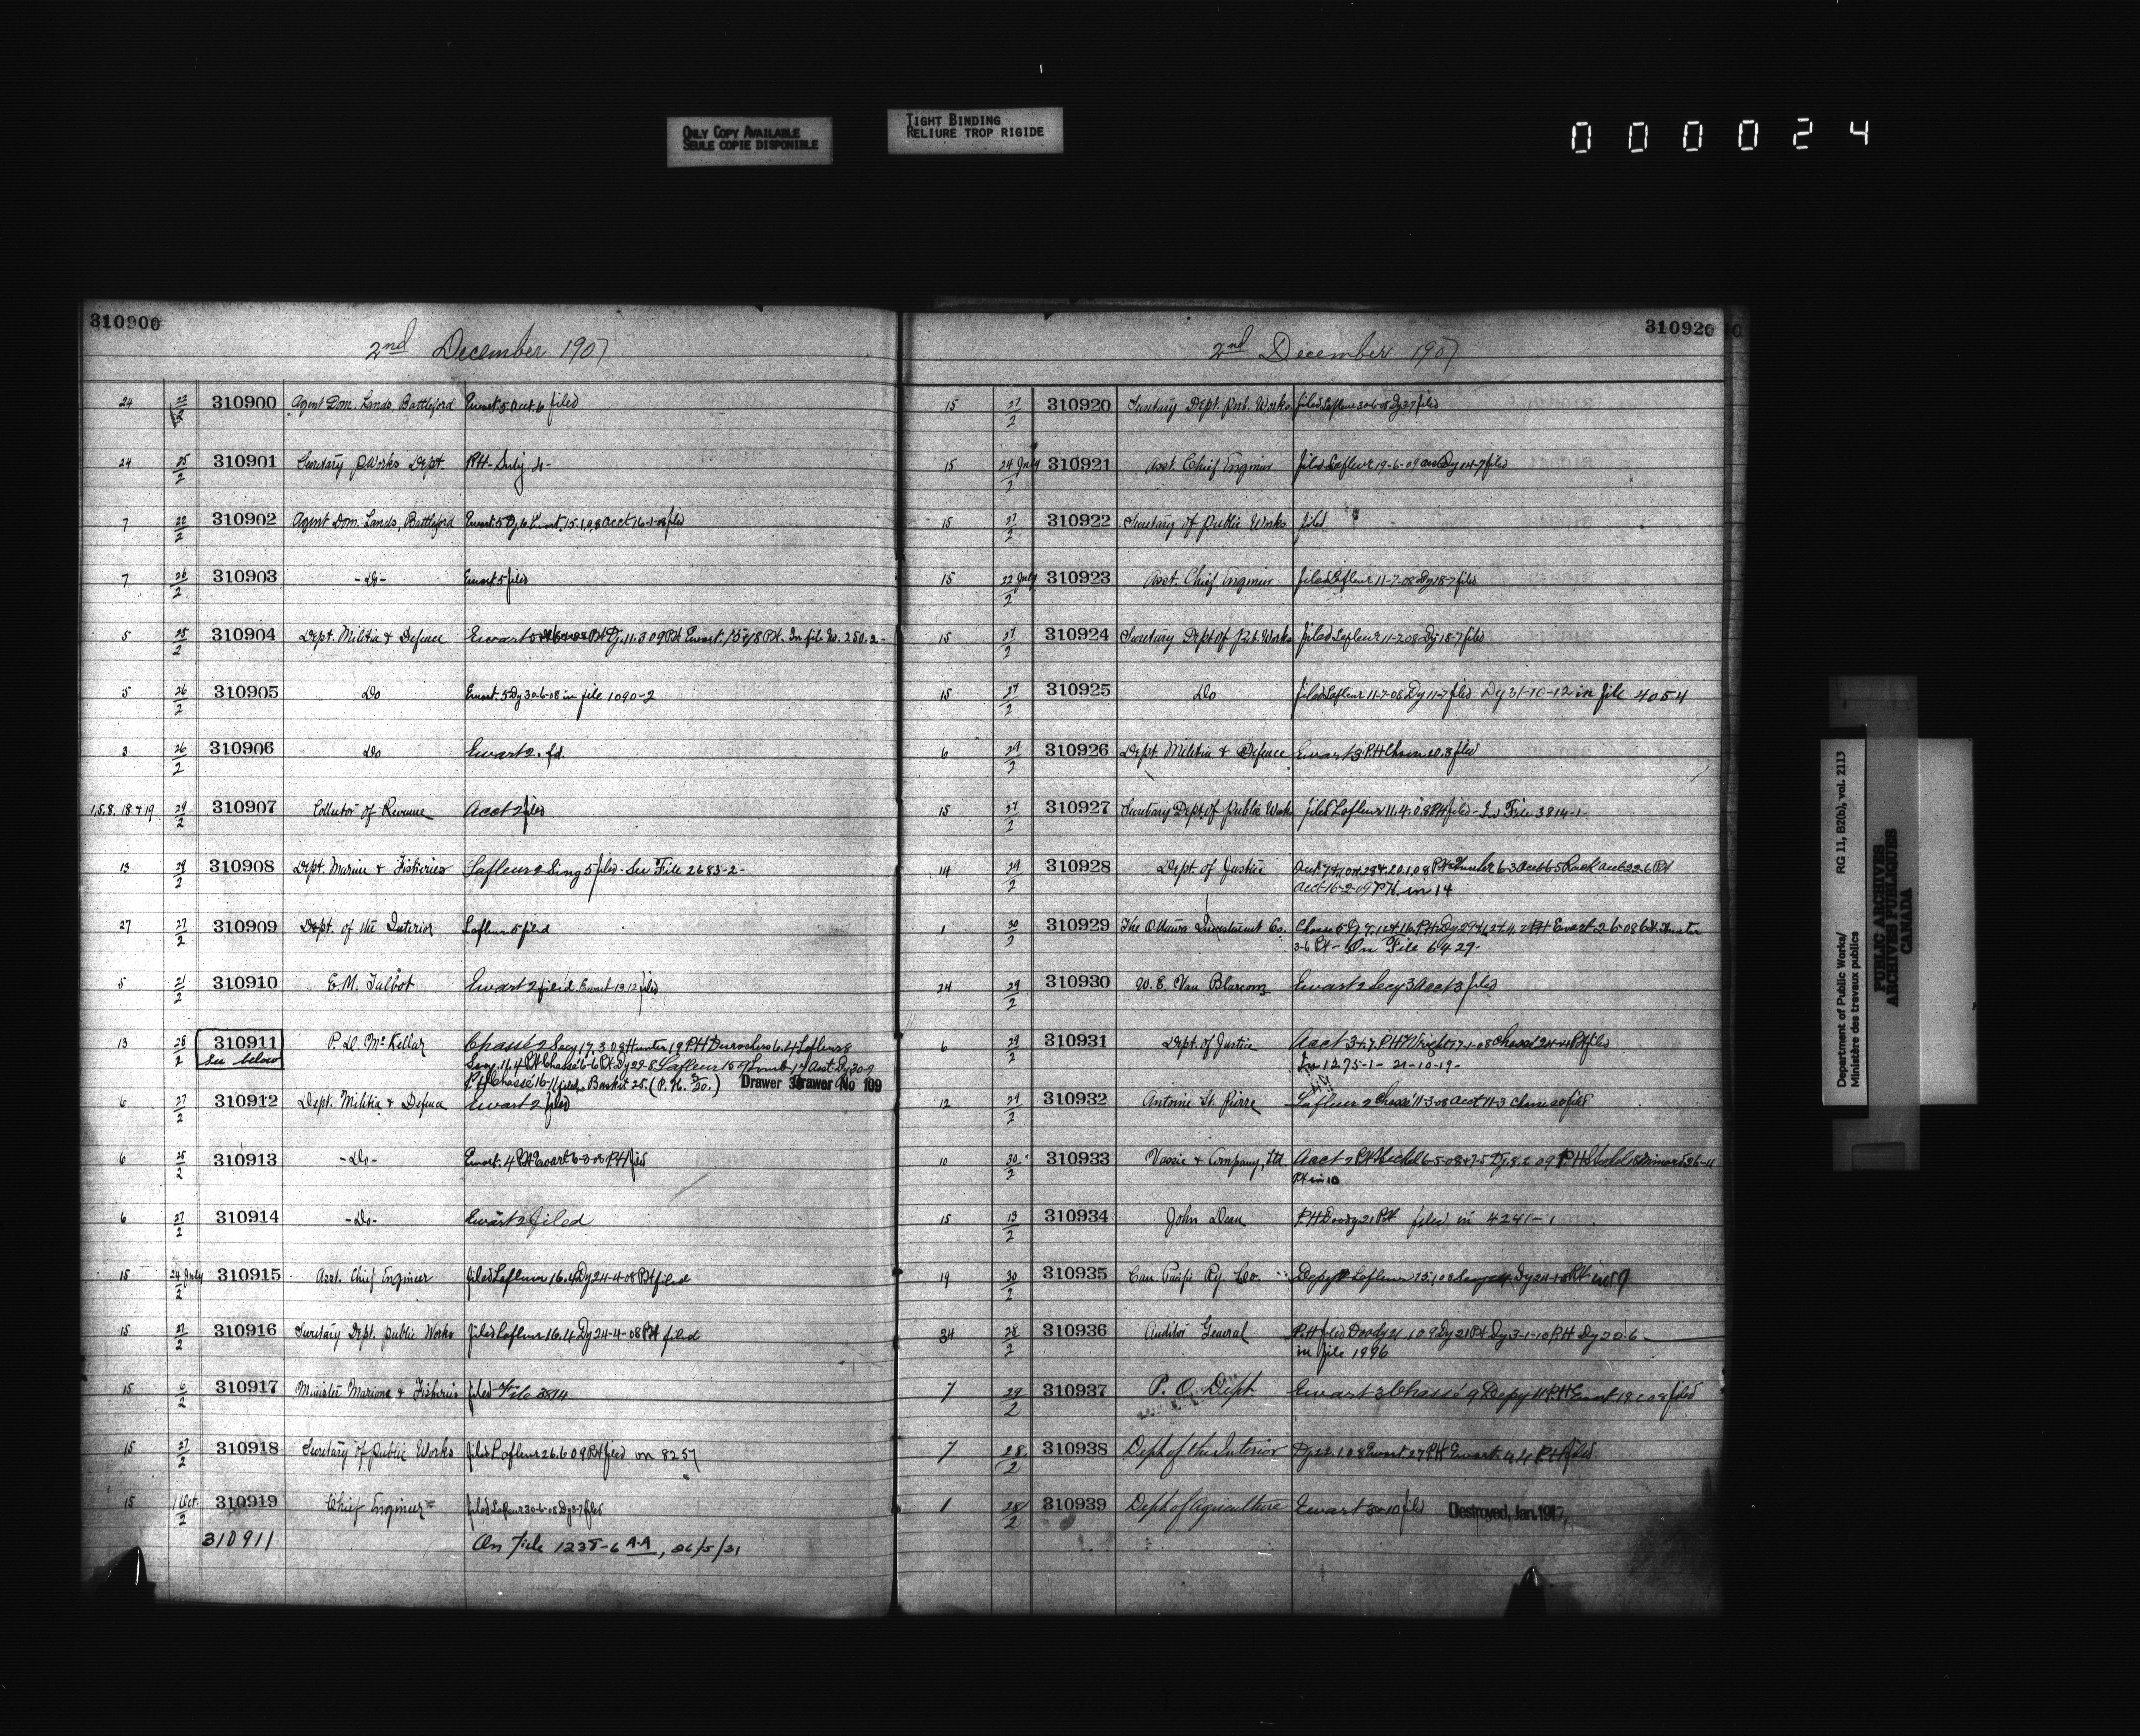 ONLY COPY AVAILABLE
SEULE COPIE DISPONIBLE
TIGHT BINDING
RELIURE TROP RIGIDE
000024
310900
2nd December 1907
24 22/2 310900 Agent Dom. Lands, Battleford Ewart 5 Acct. 6 filed
24 25/2 310901 Secretary P. Works Dept. PH-
7 22/2 310902 Agent Dom. Lands, Battleford Ewart 5 Dy 6 Ewart 15.1.08 Acct 16-1-08 filed
7 26/2 310903 -Do- Ewart 5 filed
5 25/2 310904 Dept. Militia & Defence Ewart 5 PH Dy. 11.3.09 PH Ewart PH. In file No. 250.2-
5 26/2 310905 Do Ewart 5 Dy 30-6-08 in file 1090-2
3 26/2 310906 Do Ewart 2. fd.
1,5,8,18 & 19 29/2 310907 Collector of Revenue Acct 2 filed
13 29/2 310908 Dept. Marine & Fisheries Lafleur 2 Sing 5 filed. See File 2683-2-
27 27/2 310909 Dept. of the Interior Lafleur 5 filed
5 21/2 310910 E.M. Talbot Ewart 2 filed. Ewart 13.12 filed
13 28/2 310911 P. D. McKellar Chassé 2 Secy 17.3.08 Hunter 19 PH Desrochers 6.4 Lafleur 8
See below
PH Chassé 16-11 Basket 25. (P.H. 3/20.) Drawer Drawer No 109
6 27/2 310912 Dept. Militia & Defence Ewart 2 filed
6 25/2 310913 -Do- Ewart. 4 PH Ewart 6-3-08 PH filed
6 27/2 310914 -Do- Ewart 2 filed
15 24 July/2 310915 Asst. Chief Engineer filed Lafleur 16.4 Dy 24-4-08 PH filed
15 27/2 310916 Secretary Dept. Public Works filed Lafleur 16.4 Dy 24-4-08 PH filed
15 6/2 310917 Minister Marine & Fisheries filed File 3814
15 27/2 310918 Secretary of Public Works filed Lafleur 26.6.09 PH filed on 8257
15 1 Oct./2 310919 Chief Engineer filed Lafleur 30-6-08 Dy 3-7 filed
310911 On File 1235-6 A-A, 26/5/31
310920
2nd December 1907
15 27/2 310920 Secretary Dept. Pub. Works filed Lafleur 30-6-08 Dy 27 filed
15 24 July/2 310921 Asst. Chief Engineer filed Lafleur 19-6-09 Dy 14-7 filed
15 27/2 310922 Secretary of Public Works filed
15 22 July/2 310923 Asst. Chief Engineer filed Lafleur 11-7-08 Dy 18-7 filed
15 27/2 310924 Secretary Dept of Pub. Works filed Lafleur 11-7-08 Dy 18-7 filed
15 27/2 310925 Do filed Lafleur 11-7-08 Dy 11-7 filed Dy 31-10-12 in file 4054
6 29/2 310926 Dept. Militia & Defence Ewart 3 PH 20.3 filed
15 27/2 310927 Secretary Dept. of Public Works filed Lafleur 11.4.08 PH filed - In File 3814-1-
14 29/2 310928 Dept. of Justice
Acct 16-2-09 PH. in 14
1 30/2 310929 The Ottawa Investment Co. Chasse 5 Dy 7.
3-6 PH - On File 6429-
24 29/2 310930 W. E. Van Blarcom Ewart 2 Secy 3 Acct 3 filed
6 29/2 310931 Dept. of Justice Acct 3 & 7. PH Wright 17-1-08 Chassé 24-4 PH filed
In 1275-1- 21-10-19-
12 29/2 310932 Antoine St. Pierre Lafleur 2 Chassé 11-3-08 Acct 11-3 filed
10 30/2 310933 Vassie & Company, Ltd. Acct 2 PH
PH in 10
15 13/2 310934 John Dean PH Doody 21 PH filed in 4241-1
19 30/2 310935 Can. Pacific Ry. Co. Depy Lafleur 15.1.08 Dy 24-1-8 PH in 19
34 28/2 310936 Auditor General PH filed Doody 21.10.9 Dy 21 PH Dy 3-1-10 P.H Dy 20.6-
in file 1996
7 29/2 310937 P. O. Dept Ewart 3 Chassé 9 Depy 11 P.H Ewart filed
7 28/2 310938 Dept. of the Interior Dy 22.1.08 Ewart 27 PH Ewart 4.4 PH filed
1 28/2 310939 Dept. of Agriculture Ewart 3 & 10 filed Destroyed, Jan. 1917,
Department of Public Works/ RG 11, B2(b), vol. 2113
Ministère des travaux publics
PUBLIC ARCHIVES
ARCHIVES PUBLIQUES
CANADA